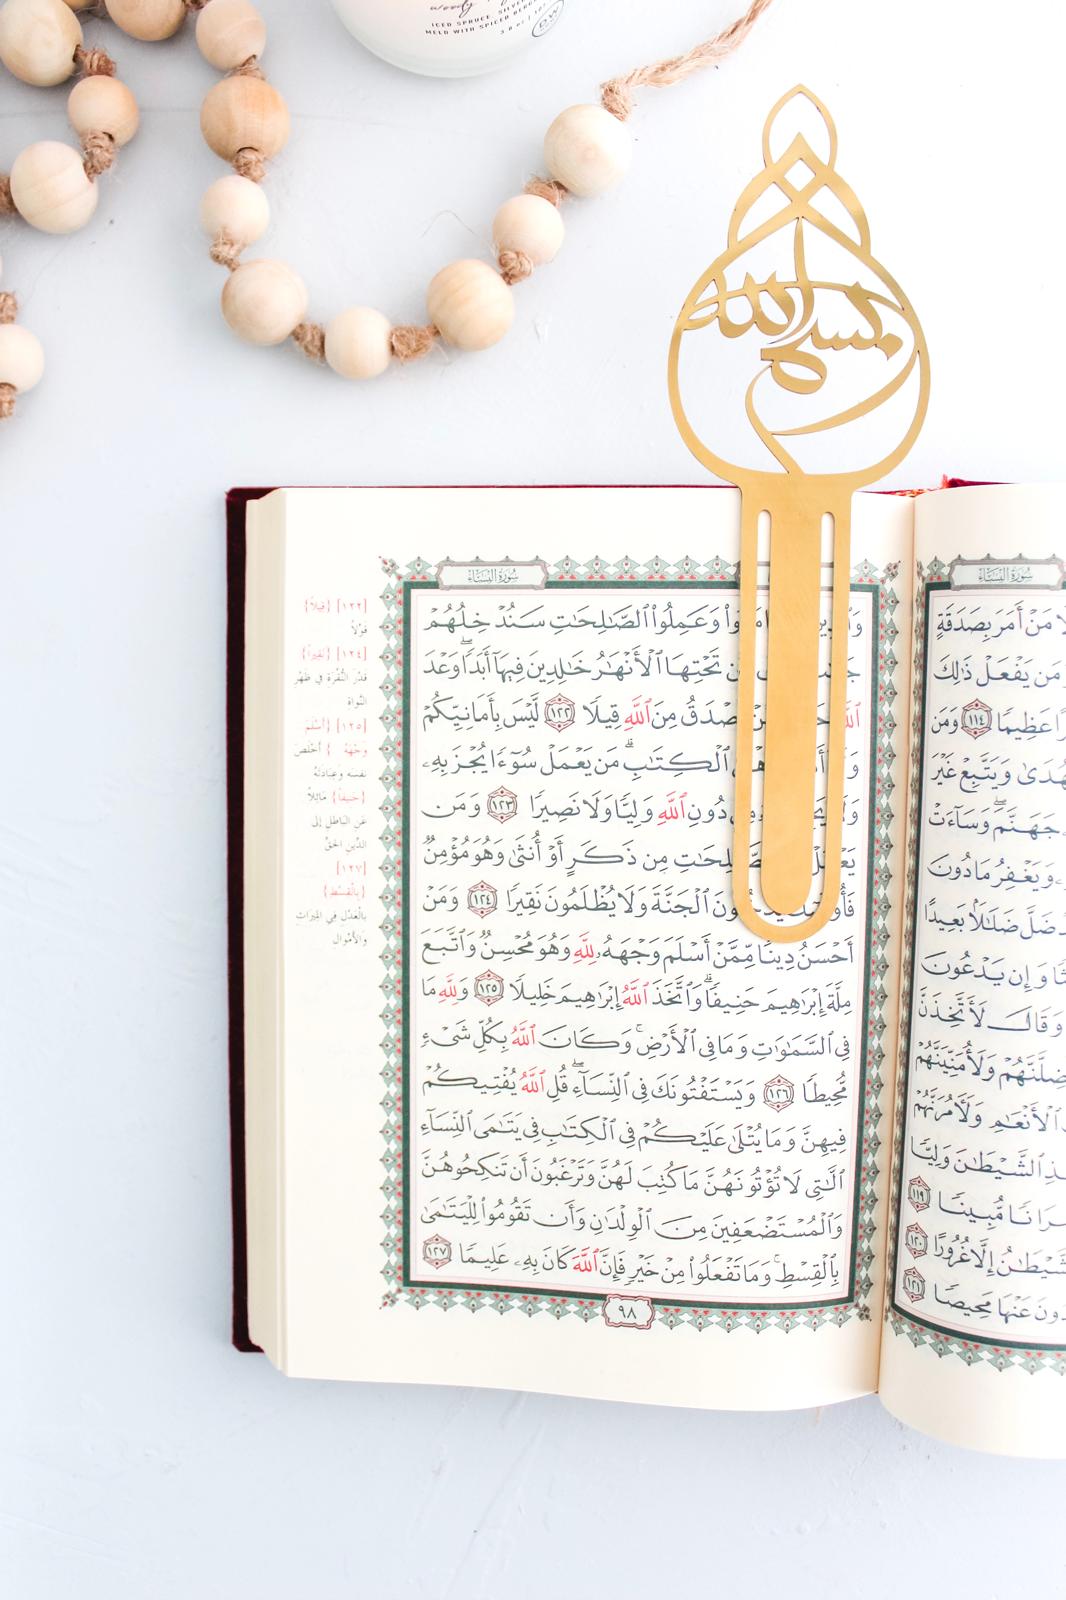 ICED SPRUCE, SILVER
MELD WITH SPICED BERG
DW
بسم الله
سُورَةُ النِّسَاءِ
سُورَةُ النِّسَاءِ
وَعَمِلُوا۟ ٱلصَّـٰلِحَـٰتِ سَنُدْخِلُهُمْ
تَحْتِهَا ٱلْأَنْهَـٰرُ خَـٰلِدِينَ فِيهَآ أَبَدًا ۖ وَعْدَ
ٱللَّهِ مِنَ ٱللَّهِ قِيلًا ١٢٢ لَّيْسَ بِأَمَانِيِّكُمْ
ٱلْكِتَـٰبِ ۗ مَن يَعْمَلْ سُوٓءًا يُجْزَ بِهِۦ
دُونِ ٱللَّهِ وَلِيًّا وَلَا نَصِيرًا ١٢٣ وَمَن
مِن ذَكَرٍ أَوْ أُنثَىٰ وَهُوَ مُؤْمِنٌ
ٱلْجَنَّةَ وَلَا يُظْلَمُونَ نَقِيرًا ١٢٤ وَمَنْ
أَحْسَنُ دِينًا مِّمَّنْ أَسْلَمَ وَجْهَهُۥ لِلَّهِ وَهُوَ مُحْسِنٌ وَٱتَّبَعَ
مِلَّةَ إِبْرَٰهِيمَ حَنِيفًا ۗ وَٱتَّخَذَ ٱللَّهُ إِبْرَٰهِيمَ خَلِيلًا ١٢٥ وَلِلَّهِ مَا
فِى ٱلسَّمَـٰوَٰتِ وَمَا فِى ٱلْأَرْضِ ۚ وَكَانَ ٱللَّهُ بِكُلِّ شَىْءٍ
مُّحِيطًا ١٢٦ وَيَسْتَفْتُونَكَ فِى ٱلنِّسَآءِ ۖ قُلِ ٱللَّهُ يُفْتِيكُمْ
فِيهِنَّ وَمَا يُتْلَىٰ عَلَيْكُمْ فِى ٱلْكِتَـٰبِ فِى يَتَـٰمَى ٱلنِّسَآءِ
ٱلَّـٰتِى لَا تُؤْتُونَهُنَّ مَا كُتِبَ لَهُنَّ وَتَرْغَبُونَ أَن تَنكِحُوهُنَّ
وَٱلْمُسْتَضْعَفِينَ مِنَ ٱلْوِلْدَٰنِ وَأَن تَقُومُوا۟ لِلْيَتَـٰمَىٰ
بِٱلْقِسْطِ ۚ وَمَا تَفْعَلُوا۟ مِنْ خَيْرٍ فَإِنَّ ٱللَّهَ كَانَ بِهِۦ عَلِيمًا ١٢٧
٩٨
[١٢٢] {قِيلاً}
قَوْلاً
[١٢٤] {نَقِيرًا}
قَدْرَ النُّقْرَةِ فِي ظَهْرِ
النَّوَاةِ
[١٢٥] {أَسْلَمَ
وَجْهَهُ} أَخْلَصَ
نَفْسَهُ وَعِبَادَتَهُ
{حَنِيفاً} مَائِلاً
عَنِ البَاطِلِ إلى
الدِّينِ الحَقِّ
[١٢٧]
{بِالْقِسْطِ}
بِالْعَدْلِ فِي المِيرَاثِ
وَالأَمْوَالِ
مَنْ أَمَرَ بِصَدَقَةٍ
وَمَن يَفْعَلْ ذَٰلِكَ
عَظِيمًا ١١٤ وَمَن
وَيَتَّبِعْ غَيْرَ
جَهَنَّمَ ۖ وَسَآءَتْ
وَيَغْفِرُ مَا دُونَ
ضَلَّ ضَلَـٰلًۢا بَعِيدًا
وَإِن يَدْعُونَ
وَقَالَ لَأَتَّخِذَنَّ
وَلَأُمَنِّيَنَّهُمْ
ٱلْأَنْعَـٰمِ وَلَـَٔامُرَنَّهُمْ
ٱلشَّيْطَـٰنَ وَلِيًّا
مُّبِينًا ١١٩
إِلَّا غُرُورًا ١٢٠
عَنْهَا مَحِيصًا ١٢١